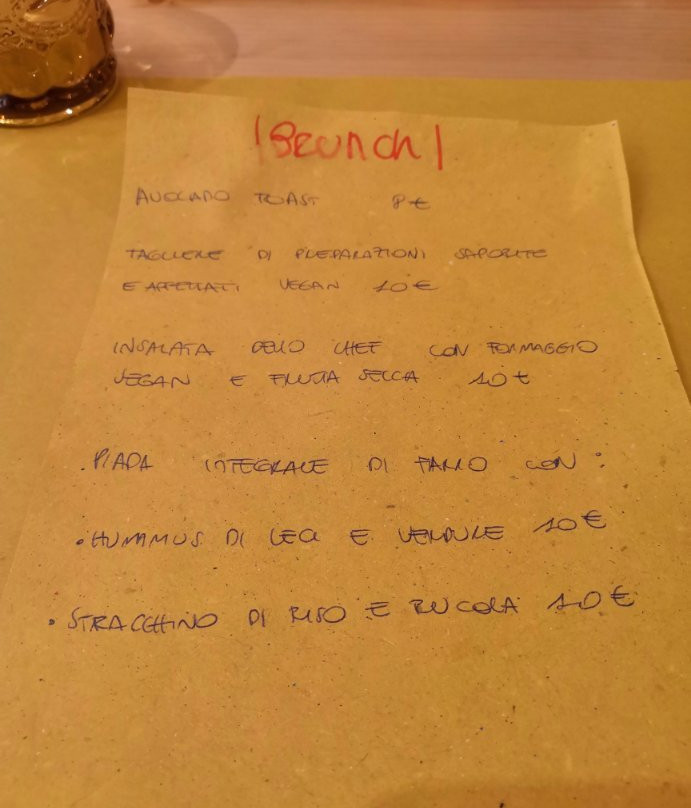 |Brunch|
AVOCADO TOAST 8€
TAGLIERE DI PREPARAZIONI SAPORITE
E AFFETTATI VEGAN 10€
INSALATA DELLO CHEF CON FORMAGGIO
VEGAN E FRUTTA SECCA 10€
.PIADA INTEGRALE DI FARRO CON:
•HUMMUS DI CECI E VERDURE 10€
•STRACCHINO DI RISO E RUCOLA 10€